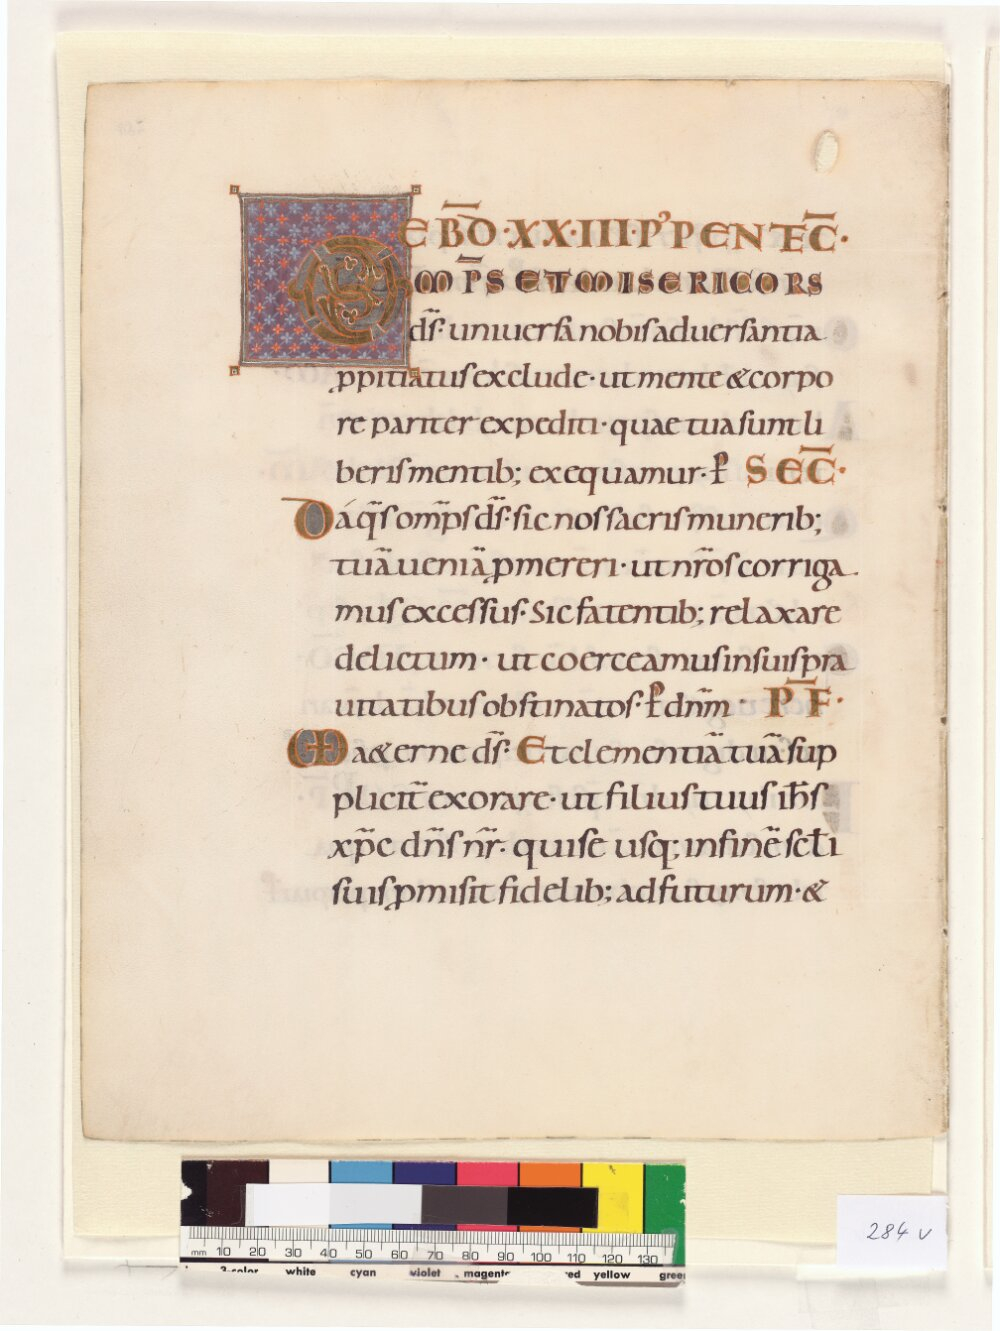 EBD̅·XX·III·P᾽PENTEC̅·
OMP̅S ET MISERICORS
d̅s· uniuersa nobis aduersantia
ꝓpitiatus exclude· ut mente & corpo
re pariter expediti· quae tua sunt li
beris mentib; exequamur· ꝑ SEC̅·
Da q̅s omp̅s d̅s· sic nos sacris munerib;
tuā ueniā ꝓmereri· ut nr̅os corriga
mus excessus· Sic fatentib; relaxare
delictum· ut coerceamus in suis pra
uitatibus obstinatos· ꝑ dnm̅· P̅F̅·
Ma&erne d̅s· Et clementiā tuā sup
plicit̅ exorare· ut filius tuus ih̅s
xp̅c dn̅s nr̅· qui se usq; in finē sc̅li
suis ꝓmisit fidelib; adfuturum· &
284 v
mm 10 20 30 40 50 60 70 80 90 100 110 120 130
3-color white cyan violet magenta red yellow green